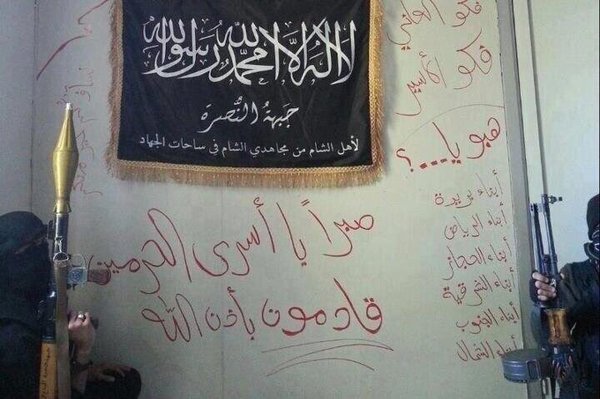 لا إله إلا الله محمد رسول الله
جبهة النصرة
لأهل الشام من مجاهدي الشام في ساحات الجهاد
صبراً يا أسرى الحرمين
قادمون بأذن الله
فكو العاني
فكو الأسير
هبو يا....؟
أبناء بريدة
أبناء الرياض
أبناء الحجاز
أبناء الشرقية
أبناء الجنوب
أبناء الشمال